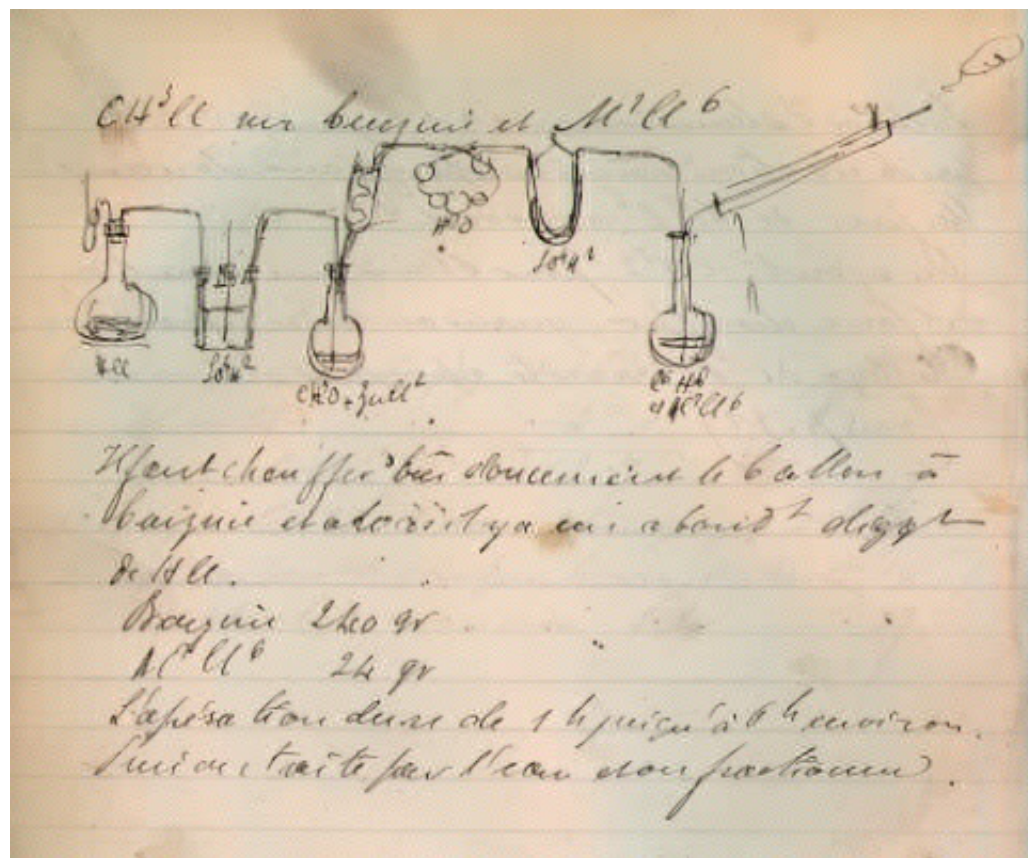 CH³Cl sur benzine et Al²Cl⁶
H²O
SO⁴H²
HCl
SO⁴H²
CH⁴O + ZnCl²
C⁶H⁶
et Al²Cl⁶
Il faut chauffer bien doucement le ballon à
benzine et alors il y a un abond^t dégag^t
de HCl.
Benzine 240 gr
Al²Cl⁶ 24 gr
L'opération dure de 1 h jusqu'à 6 h environ.
Puis on traite par l'eau et on fractionne.